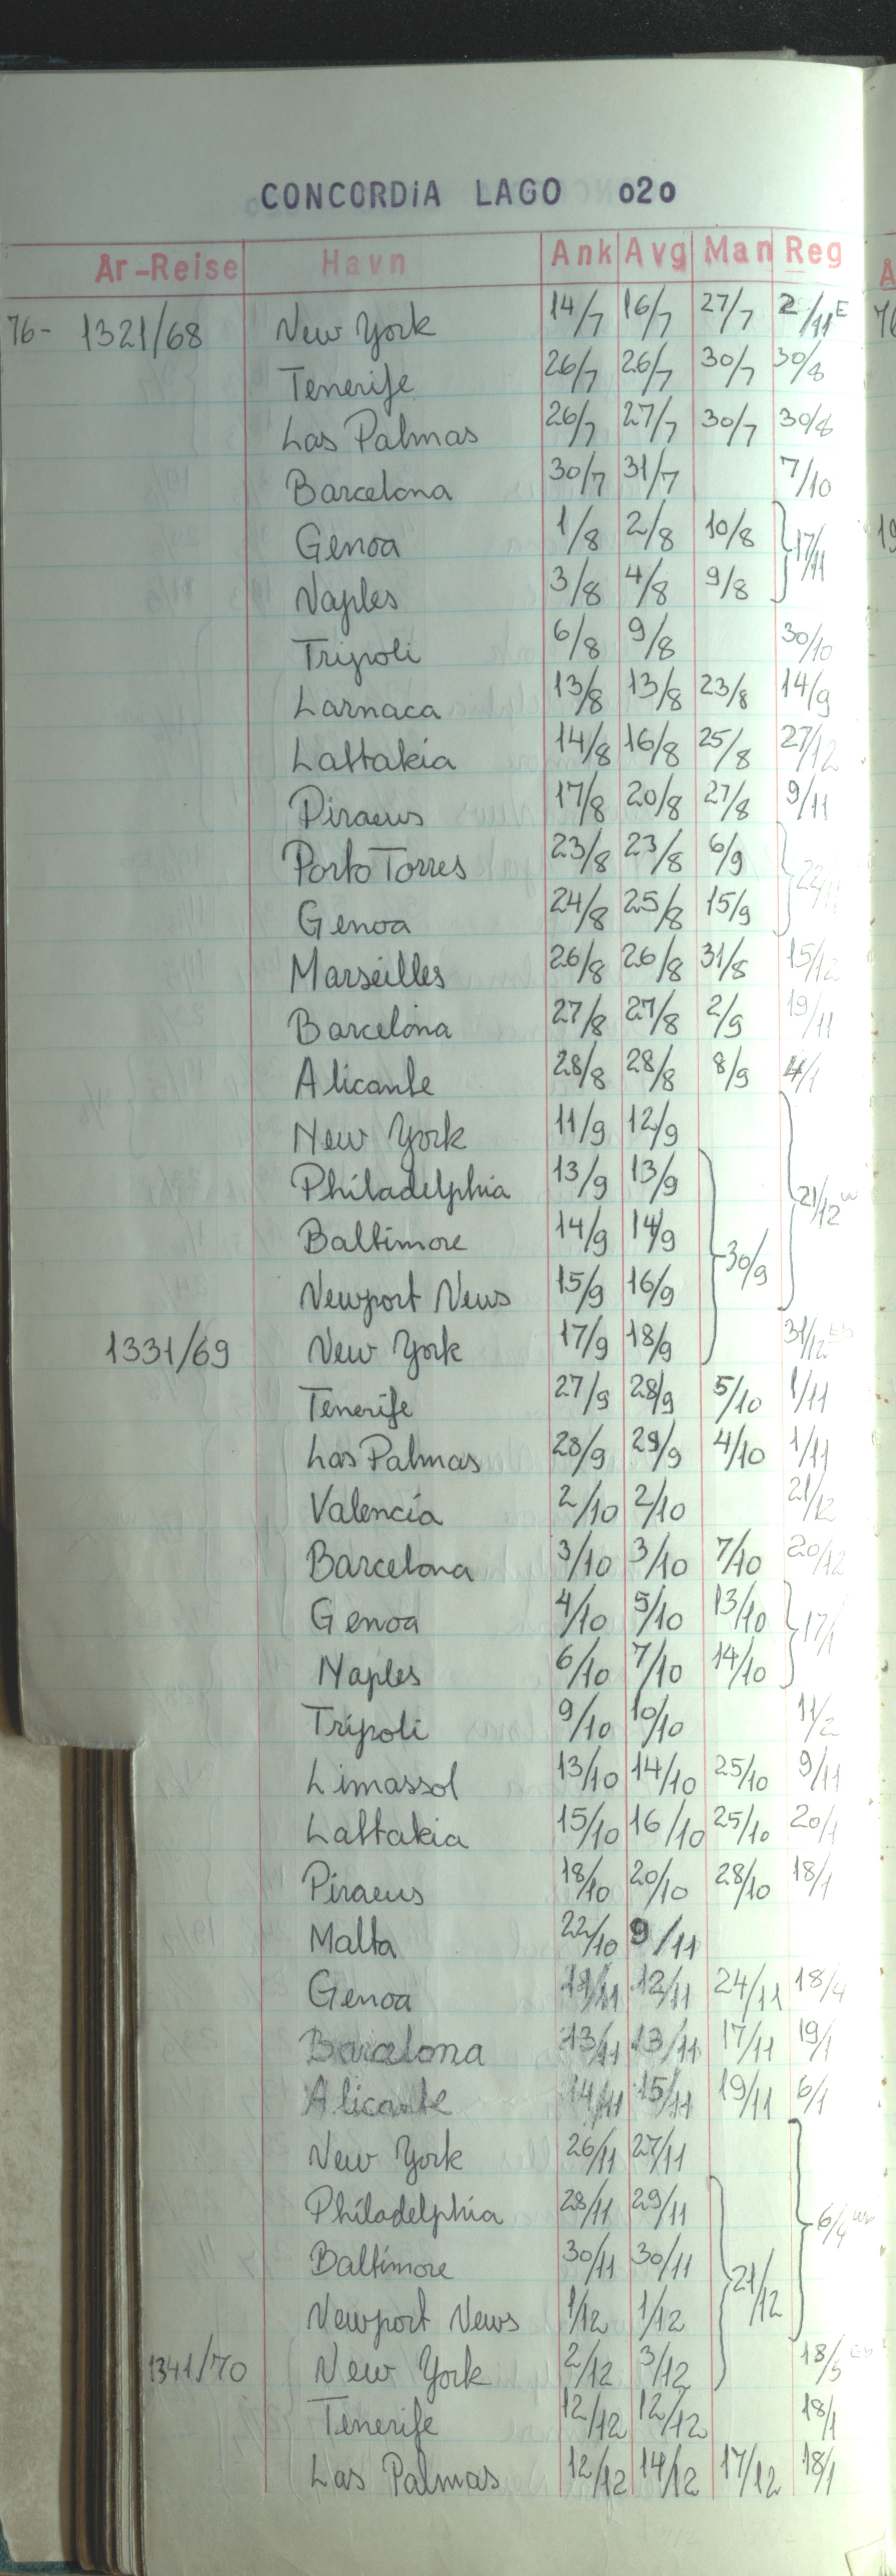 CONCORDiA LAGO 020
År-Reise Havn Ank Avg Man Reg
76- 1321/68 New York 14/7 16/7 27/7 2/11 E
Tenerife 26/7 26/7 30/7 30/8
Las Palmas 26/7 27/7 30/7 30/8
Barcelona 30/7 31/7 7/10
Genoa 1/8 2/8 10/8 17/11
Naples 3/8 4/8 9/8
Tripoli 6/8 9/8 30/10
Larnaca 13/8 13/8 23/8 14/9
Lattakia 14/8 16/8 25/8 27/12
Piraeus 17/8 20/8 27/8 9/11
Porto Torres 23/8 23/8 6/9
Genoa 24/8 25/8 15/9
Marseilles 26/8 26/8 31/8 15/12
Barcelona 27/8 27/8 2/9 19/11
Alicante 28/8 28/8 8/9 4/1
New York 11/9 12/9
Philadelphia 13/9 13/9 21/12
Baltimore 14/9 14/9 30/9
Newport News 15/9 16/9
1331/69 New York 17/9 18/9 31/12
Tenerife 27/9 28/9 5/10 1/11
Las Palmas 28/9 29/9 4/10 1/11
Valencia 2/10 2/10 21/12
Barcelona 3/10 3/10 7/10 20/12
Genoa 4/10 5/10 13/10 17/1
Naples 6/10 7/10 14/10
Tripoli 9/10 10/10 11/2
Limassol 13/10 14/10 25/10 9/11
Lattakia 15/10 16/10 25/10 20/1
Piraeus 18/10 20/10 28/10 18/1
Malta 22/10 9/11
Genoa 11/11 12/11 24/11 18/4
Barcelona 13/11 13/11 17/11 19/1
Alicante 14/11 15/11 19/11 6/1
New York 26/11 27/11
Philadelphia 28/11 29/11 6/4
Baltimore 30/11 30/11 21/12
Newport News 1/12 1/12
1341/70 New York 2/12 3/12 18/5
Tenerife 12/12 12/12 18/1
Las Palmas 12/12 14/12 17/12 18/1